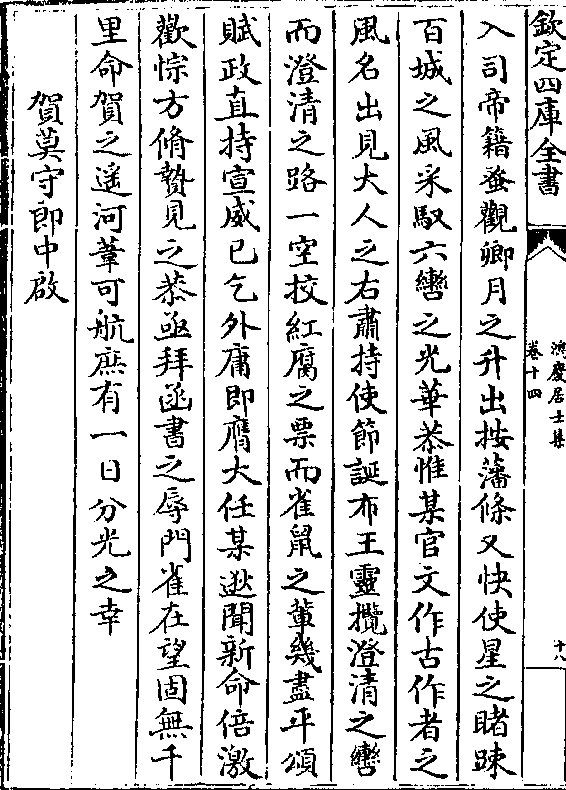 欽定四庫全書
鴻慶居士集
卷十四
十八
入司帝籍蚤觀卿月之升出按藩條又快使星之睹踈
百城之風采馭六轡之光華恭惟某官文作古作者之
風名出見大人之右肅持使節誕布王靈攬澄清之轡
而澄清之路一空挍紅腐之票而雀鼠之輩幾盡平頌
賦政直持宣威已乞外庸即膺大任某逖聞新命倍激
歡悰方脩贄見之恭亟拜函書之辱門雀在望固無千
里命賀之遥河葦可航庶有一日分光之幸
賀莫守郎中啟